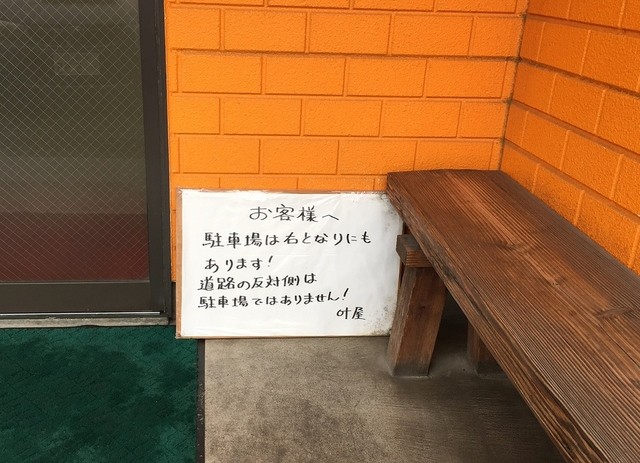 お客様へ
駐車場は右となりにも
あります!
道路の反対側は
駐車場ではありません!
叶屋